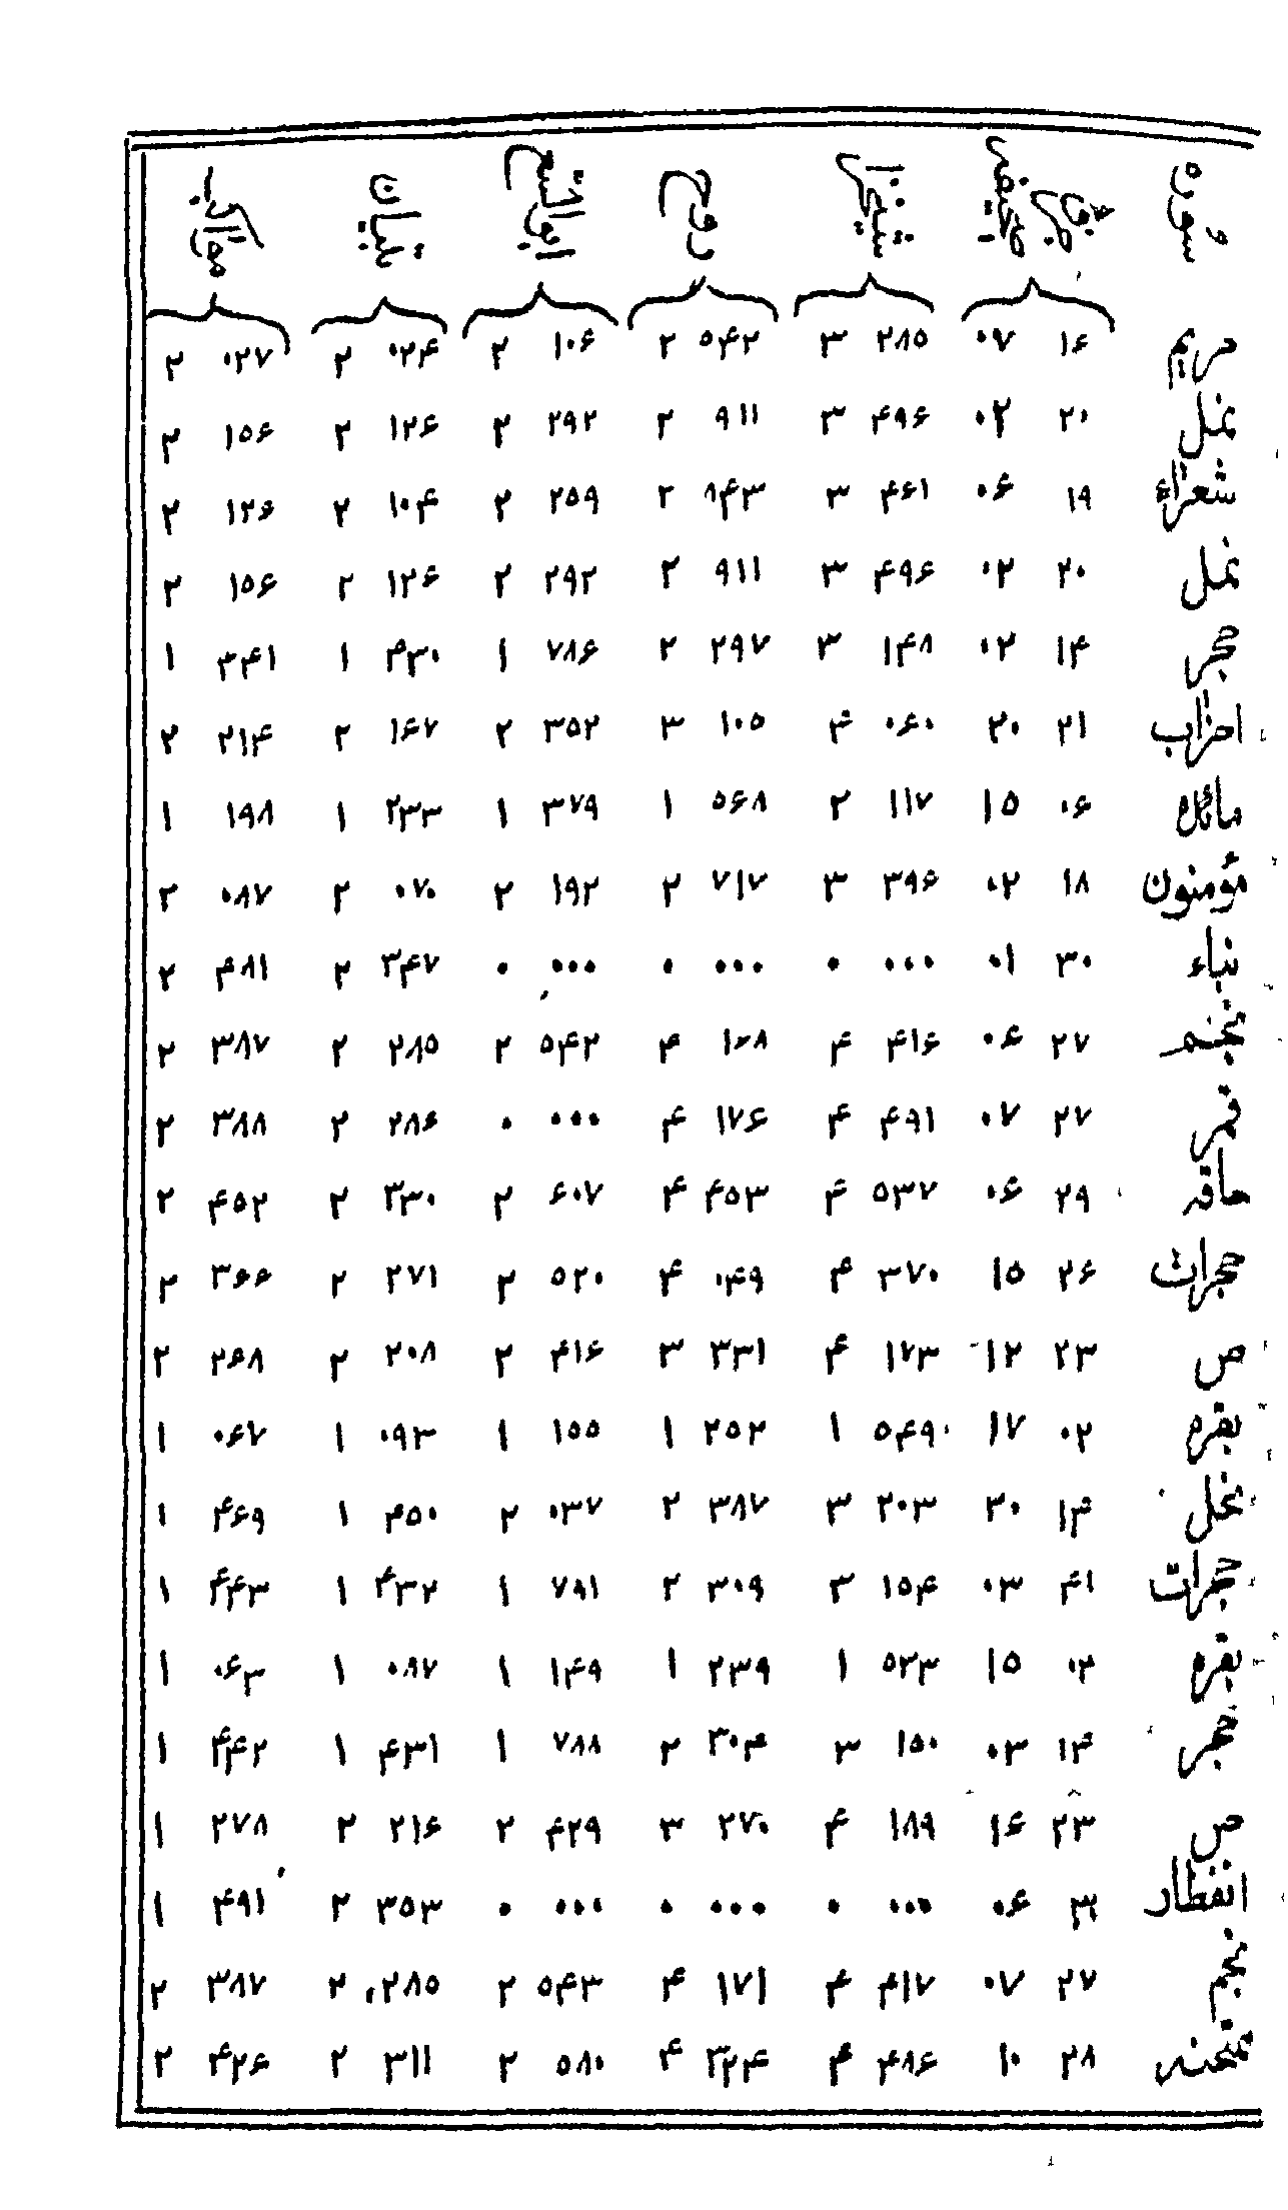 سوره روح تبیان
مریم ۱۶ ۰۷ ۲۸۵ ۳ ۵۴۲ ۲ ۱۰۶ ۲ ۰۲۴ ۲ ۰۲۷ ۲
نمل ۲۰ ۰۲ ۴۹۶ ۳ ۹۱۱ ۲ ۲۹۲ ۲ ۱۲۶ ۲ ۱۵۶ ۲
شعراء ۱۹ ۰۶ ۴۶۱ ۳ ۸۴۳ ۲ ۲۵۹ ۲ ۱۰۴ ۲ ۱۲۶ ۲
نمل ۲۰ ۰۲ ۴۹۶ ۳ ۹۱۱ ۲ ۲۹۲ ۲ ۱۲۶ ۲ ۱۵۶ ۲
حجر ۱۴ ۰۲ ۱۴۸ ۳ ۲۹۷ ۲ ۷۸۶ ۱ ۴۳۰ ۱ ۴۴۱ ۱
احزاب ۲۱ ۲۰ ۰۶۰ ۴ ۱۰۵ ۳ ۳۵۲ ۲ ۱۶۷ ۲ ۲۱۴ ۲
مائده ۰۶ ۱۵ ۱۱۷ ۲ ۵۶۸ ۱ ۳۷۹ ۱ ۲۳۳ ۱ ۱۹۸ ۱
مؤمنون ۱۸ ۰۲ ۳۹۶ ۳ ۷۱۷ ۲ ۱۹۲ ۲ ۰۷۰ ۲ ۰۸۷ ۲
نباء ۳۰ ۰۱ ۰۰۰ ۰ ۰۰۰ ۰ ۰۰۰ ۰ ۳۴۷ ۲ ۴۸۱ ۲
نجم ۲۷ ۰۶ ۴۱۶ ۴ ۱۲۸ ۴ ۵۴۲ ۲ ۲۸۵ ۲ ۳۸۷ ۲
قمر ۲۷ ۰۷ ۴۹۱ ۴ ۱۷۶ ۴ ۰۰۰ ۰ ۲۸۶ ۲ ۳۸۸ ۲
حاقه ۲۹ ۰۶ ۵۳۷ ۴ ۴۵۳ ۴ ۶۰۷ ۲ ۳۳۰ ۲ ۴۵۲ ۲
حجرات ۲۶ ۱۵ ۳۷۰ ۴ ۰۴۹ ۴ ۵۲۰ ۲ ۲۷۱ ۲ ۳۶۶ ۲
ص ۲۳ ۱۲ ۱۷۳ ۴ ۳۳۱ ۳ ۴۱۶ ۲ ۲۰۸ ۲ ۲۶۸ ۲
بقره ۰۲ ۱۷ ۵۴۹ ۱ ۲۵۲ ۱ ۱۵۵ ۱ ۰۹۳ ۱ ۰۶۷ ۱
نحل ۱۴ ۲۰ ۲۰۳ ۳ ۳۸۷ ۲ ۰۳۷ ۲ ۴۵۰ ۱ ۴۶۹ ۱
حجرات ۴۱ ۰۳ ۱۵۴ ۳ ۳۰۹ ۲ ۷۹۱ ۱ ۴۳۲ ۱ ۴۴۳ ۱
بقره ۰۲ ۱۵ ۵۲۳ ۱ ۲۳۹ ۱ ۱۴۹ ۱ ۰۸۷ ۱ ۰۶۳ ۱
حجر ۱۴ ۰۳ ۱۵۰ ۳ ۳۰۴ ۲ ۷۸۸ ۱ ۴۳۱ ۱ ۴۴۲ ۱
ص ۲۳ ۱۶ ۱۸۹ ۴ ۲۷۰ ۳ ۴۲۹ ۲ ۲۱۶ ۲ ۲۷۸ ۱
انفطار ۰۶ ۰۰۰ ۰ ۰۰۰ ۰ ۰۰۰ ۰ ۳۵۳ ۲ ۴۹۱ ۱
نجم ۲۷ ۰۷ ۴۱۷ ۴ ۱۷۱ ۴ ۵۴۳ ۲ ۲۸۵ ۲ ۳۸۷ ۲
ممتحنه ۲۸ ۱۰ ۴۸۶ ۴ ۳۲۴ ۴ ۵۸۰ ۲ ۳۱۱ ۲ ۴۲۶ ۲